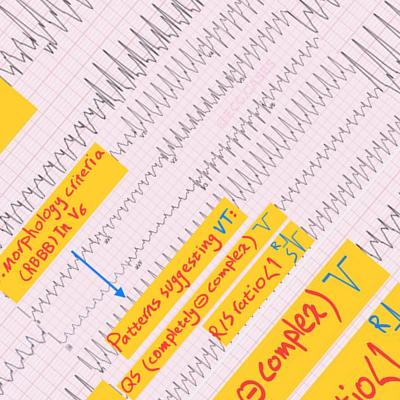 .Morphology criteria
(RBBB) In V6
Patterns suggesting VT:
QS (completely ⊖ complex)
R/S ratio<1 R S
⊖ complex)
tio<1 R